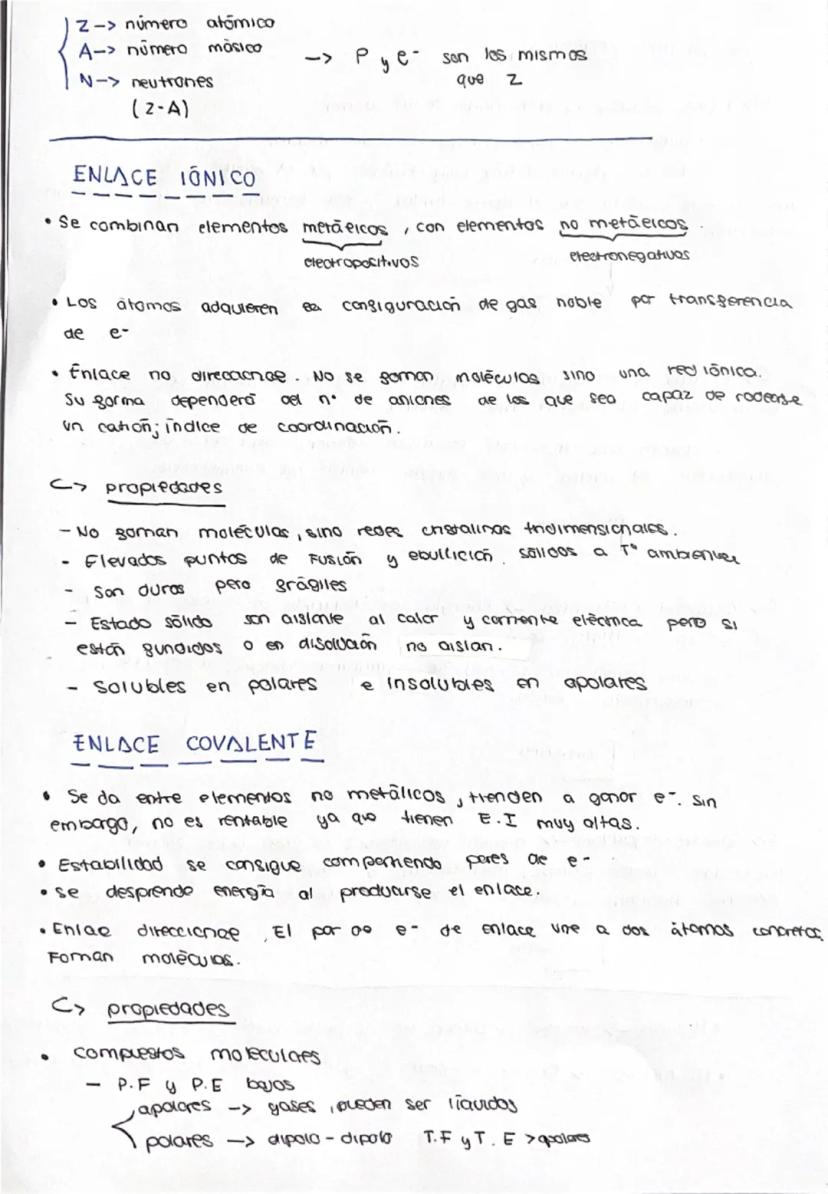 Z -> número atómico
A -> número másico
-> P y e- son los mismos
que Z
N -> neutrones
(Z-A)
ENLACE IÓNICO
• Se combinan elementos metálicos, con elementos no metálicos.
electropositivos electronegativos
• Los átomos adquieren la configuración de gas noble por transferencia
de e-
• Enlace no direccional. No se forman moléculas sino una red iónica.
Su forma dependerá del nº de aniones de los que sea capaz de rodearse
un catión; índice de coordinación.
↳ propiedades
- No forman moléculas, sino redes cristalinas tridimensionales.
- Elevados puntos de fusión y ebullición. sólidos a Tª ambiente
- Son duros pero frágiles
- Estado sólido son aislante al calor y corriente eléctrica pero si
están fundidos o en disolución no aislan.
- Solubles en polares e insolubles en apolares
ENLACE COVALENTE
• Se da entre elementos no metálicos, tienden a ganar e-. Sin
embago, no es rentable ya que tienen E.I muy altas.
• Estabilidad se consigue compartiendo pares de e-
• Se desprende energía al producirse el enlace.
• Enlace direccional. El par de e- de enlace une a dos átomos concretos.
Forman moléculas.
↳ propiedades
• Compuestos moleculares
- P.F y P.E bajos
apolares -> gases, pueden ser líquidos
polares -> dipolo - dipolo T.F y T.E > apolares